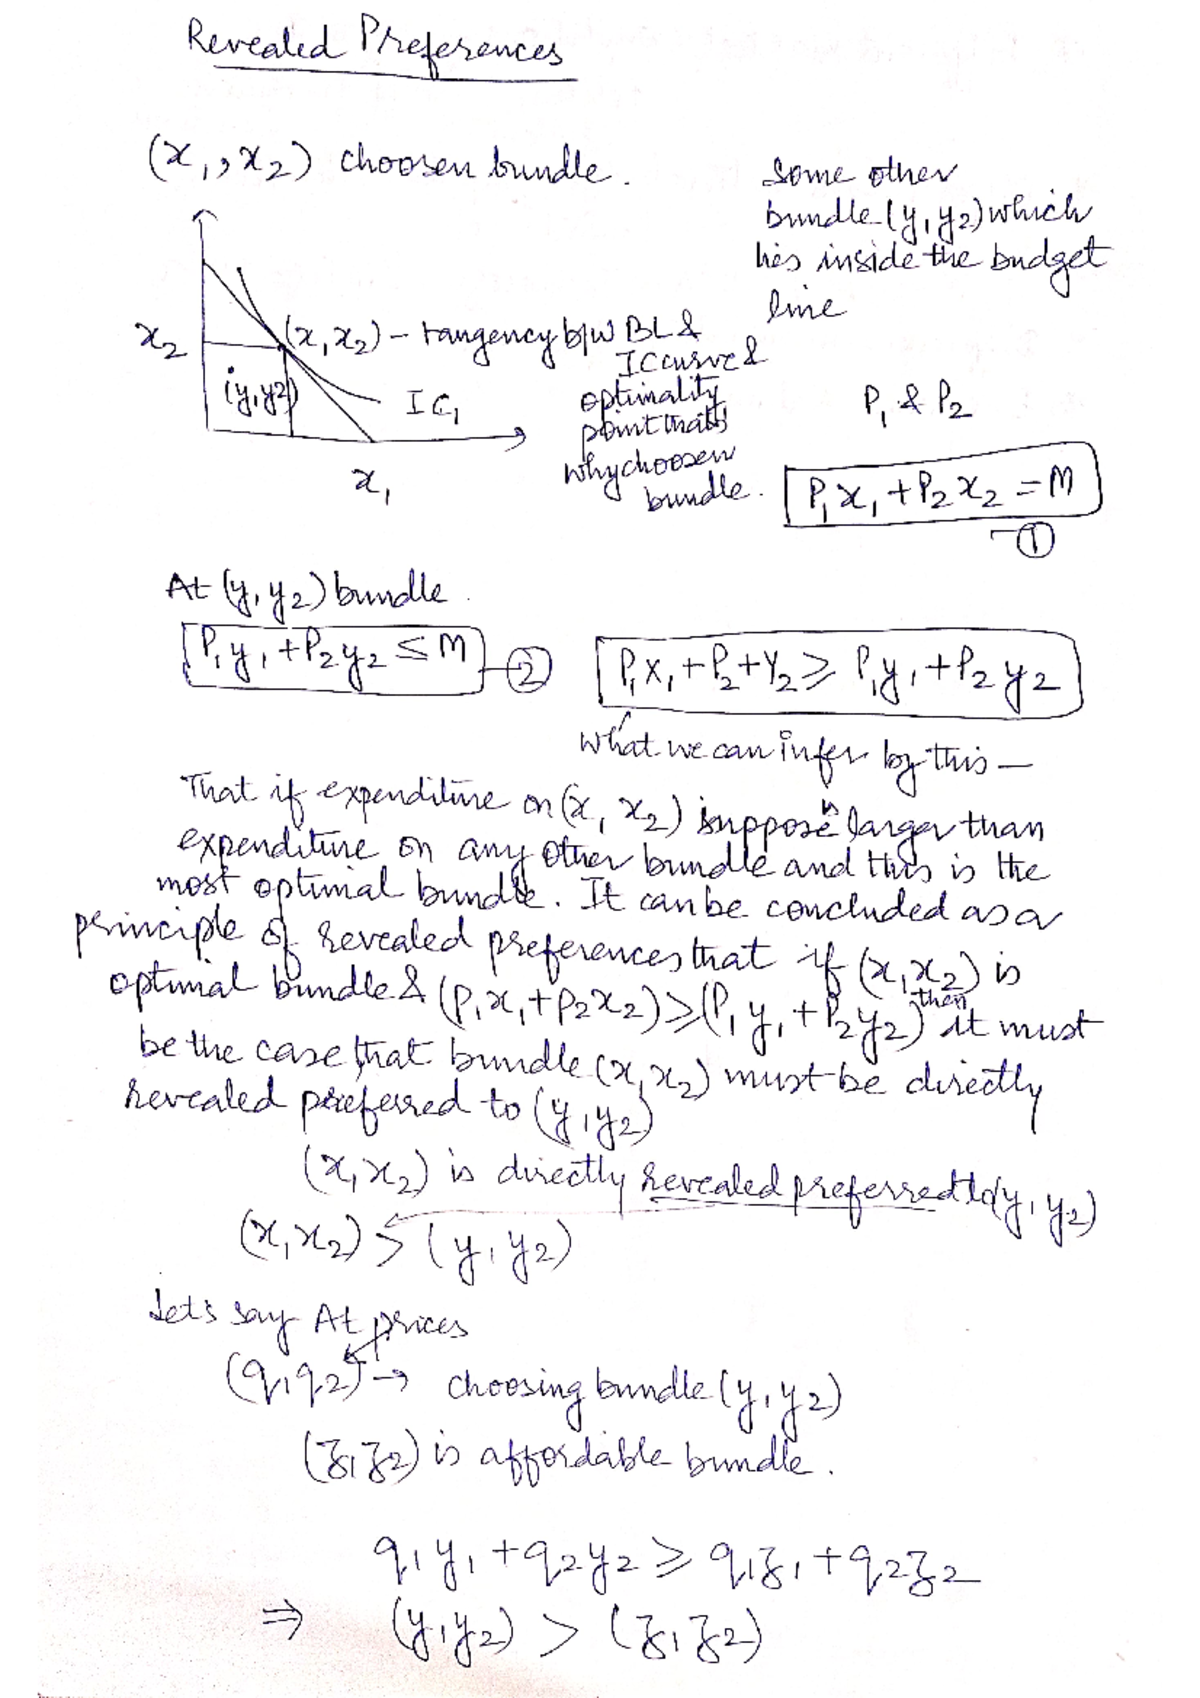 Revealed Preferences
(x1, x2) choosen bundle.
Some other
bundle (y1 y2) which
lies inside the budget
line
x2
(x1 x2) - tangency b/w BL &
IC curve &
optimality
point that's
why choosen
bundle.
(y1 y2)
IC1
x1
P1 & P2
P1 x1 + P2 x2 = M
-①
At (y1 y2) bundle.
P1 y1 + P2 y2 ≤ M -②
P1 X1 + P2 + Y2 ≥ P1 y1 + P2 y2
what we can infer by this —
That if expenditure on (x1 x2) suppose is larger than
expenditure on any other bundle and this is the
most optimal bundle. It can be concluded as a
principle of revealed preferences that if (x1 x2) is
optimal bundle & (P1 x1 + P2 x2) ≥ (P1 y1 + P2 y2) then it must
be the case that bundle (x1 x2) must be directly
revealed preferred to (y1 y2)
(x1 x2) is directly revealed preferred to (y1 y2)
(x1 x2) > (y1 y2)
Let's say At prices
(q1 q2) → choosing bundle (y1 y2)
(z1 z2) is affordable bundle.
q1 y1 + q2 y2 ≥ q1 z1 + q2 z2
⇒ (y1 y2) > (z1 z2)